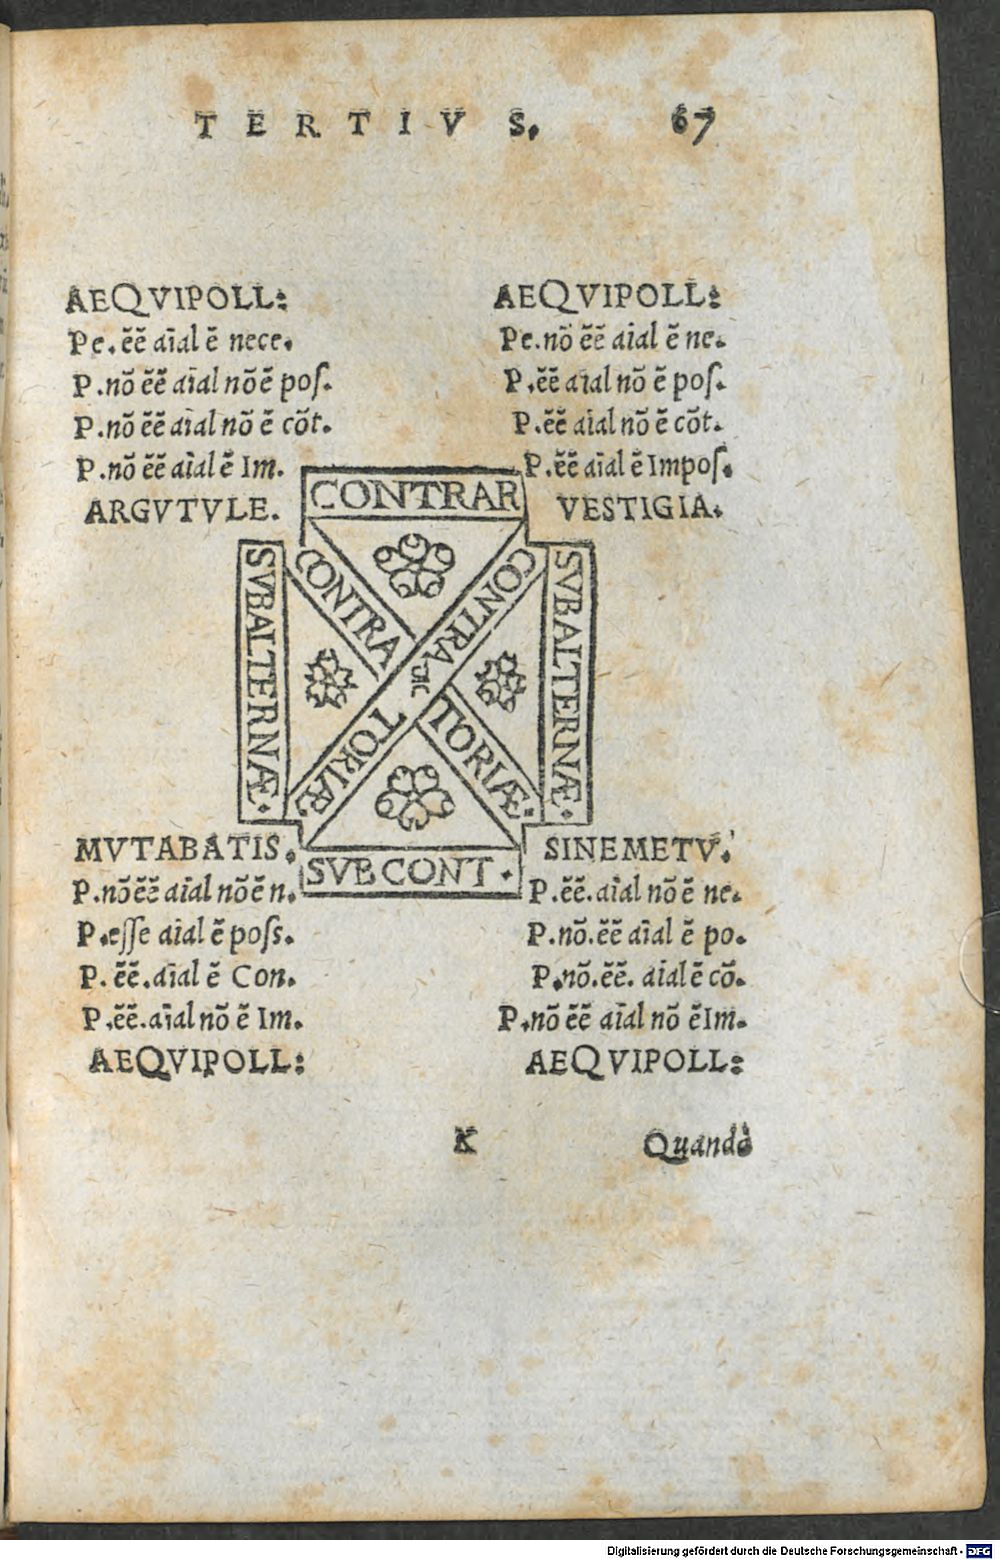 TERTIVS. 67
AEQVIPOLL:
Pe. ēē aīal ē nece.
P. nō ēē aīal nō ē pos.
P. nō ēē aīal nō ē cōt.
P. nō ēē aīal ē Im.
ARGVTVLE.
AEQVIPOLL:
Pe. nō ēē aīal ē ne.
P. ēē aīal nō ē pos.
P. ēē aīal nō ē cōt.
P. ēē aīal ē Impos.
VESTIGIA.
CONTRAR
SVBALTERNÆ.
CONTRA DIC TORIÆ.
CONTRA TORIÆ.
SVBALTERNÆ.
SVBCONT.
MVTABATIS.
P. nō ēē aīal nō ē n.
P. esse aīal ē poss.
P. ēē. aīal ē Con.
P. ēē. aīal nō ē Im.
AEQVIPOLL:
SINEMETV.
P. ēē. aīal nō ē ne.
P. nō. ēē aīal ē po.
P. nō. ēē. aīal ē cō.
P. nō ēē aīal nō ē Im.
AEQVIPOLL:
K Quandò
Digitalisierung gefördert durch die Deutsche Forschungsgemeinschaft - DFG